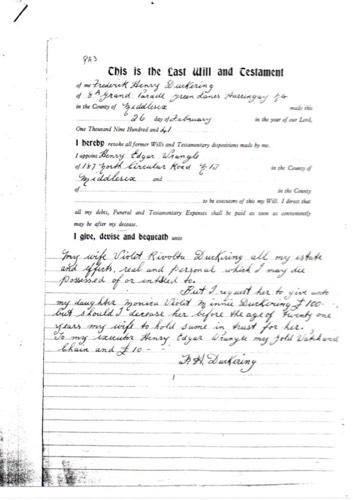 PA3
This is the Last Will and Testament
of me Frederick Henry Duckering
of 8A Grand Parade Green Lanes Harringay N4
in the County of Middlesex made this
26 day of February in the year of our Lord,
One Thousand Nine Hundred and 41
I hereby revoke all former Wills and Testamentary dispositions made by me.
I appoint Henry Edgar Wrangle
of 187 North Circular Road in the County of
Middlesex and
of in the County
to be executors of this my Will. I direct that
all my debts, Funeral and Testamentary Expenses shall be paid as soon as conveniently
may be after my decease.
I give, devise and bequeath unto
my wife Violet Rivolta Duckering all my estate
and effects, real and personal which I may die
possessed of or intitled to.
But I request her to give unto
my daughter Monica Violet Minnie Duckering £100-
but should I decease her before the age of twenty one
years my wife to hold same in trust for her.
To my executor Henry Edgar Wrangle my gold Watch and
Chain and £10-
F. H. Duckering